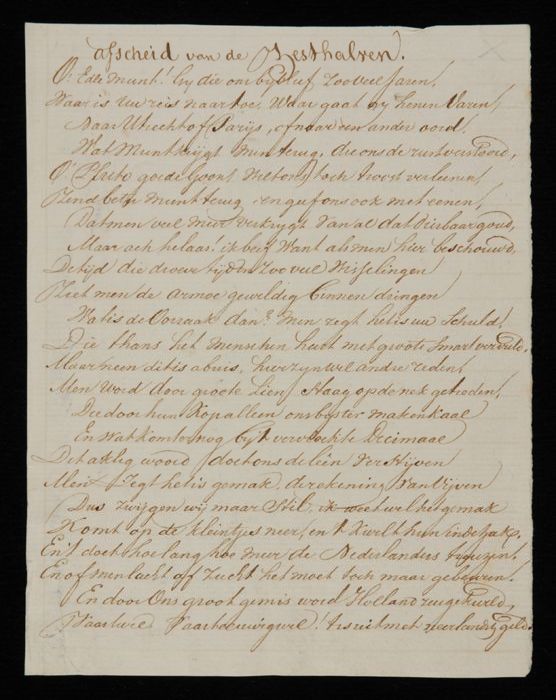 afscheid van de Zesthalven.
O Edle munt! Gy die ons byblyf Zoo veel Jaren,
Waar is Uw reis naar toe, Waar gaat gy henen Varen,
Naar Utrecht of Parys, of naar een ander oord,
Wat Munt krygt men terug, die ons de rust verstoord,
O Pluto goede Goont Wilt ons toch troost verleenen,
Zend beter munt terug en geef ons ook met eenen,
Dat men veel meer verkrygt Van al dat Dierbaar goud,
Maar ach helaas! ik beef Want als men hier beschouwd
De tyd die droeve tyd en Zoo veel Wisselingen
Ziet men de armoe geweldig binnen dringen
Wat is de Oorzaak dan? Men zegt het is uw Schuld,
Die thans het menschen hart met groote Smart vervuld.
Maar neen dit is abuis, hier zyn wel andre reden,
Men Word door groote Lien Haag op de nek getreden,
Die door hun Kop alleen ons byster maken kaal
En Wat komt er nog by 't vervloekte Decimaal
Dit aklig woord doet ons de leen Verstyven
Men Zegt het is gemak, de rekening Van Vyven
Dus Zwygen wy maar Stil, ik weet wel het gemak
Komt op de kleintjes neer, en 't Kwelt hun in de Zak.
En 't doet hoe lang hoe meer de Nederlanders treuren,
En of men lacht of Zucht het moet toch maar gebeuren.
En door Ons groot gemis word Holland zeer gekweld,
Vaart wel Vaart eeuwig wel! tis uit met neerlands geld.